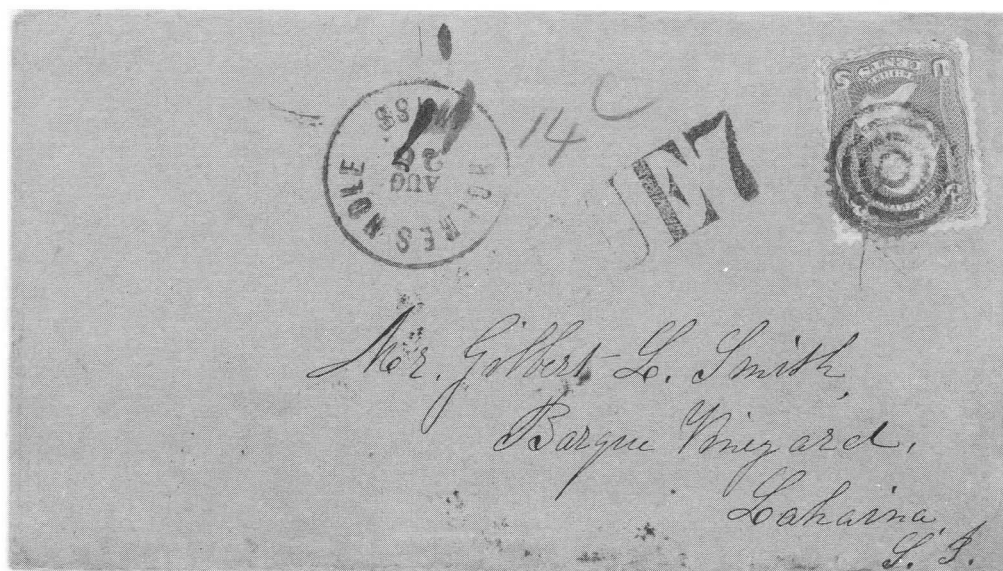 HOLMES HOLE
AUG
20
MASS
14
DUE 7
THREE
CENTS
3
3
Mr. Gilbert L. Smith,
Barque Vineyard,
Lahaina,
S. I.